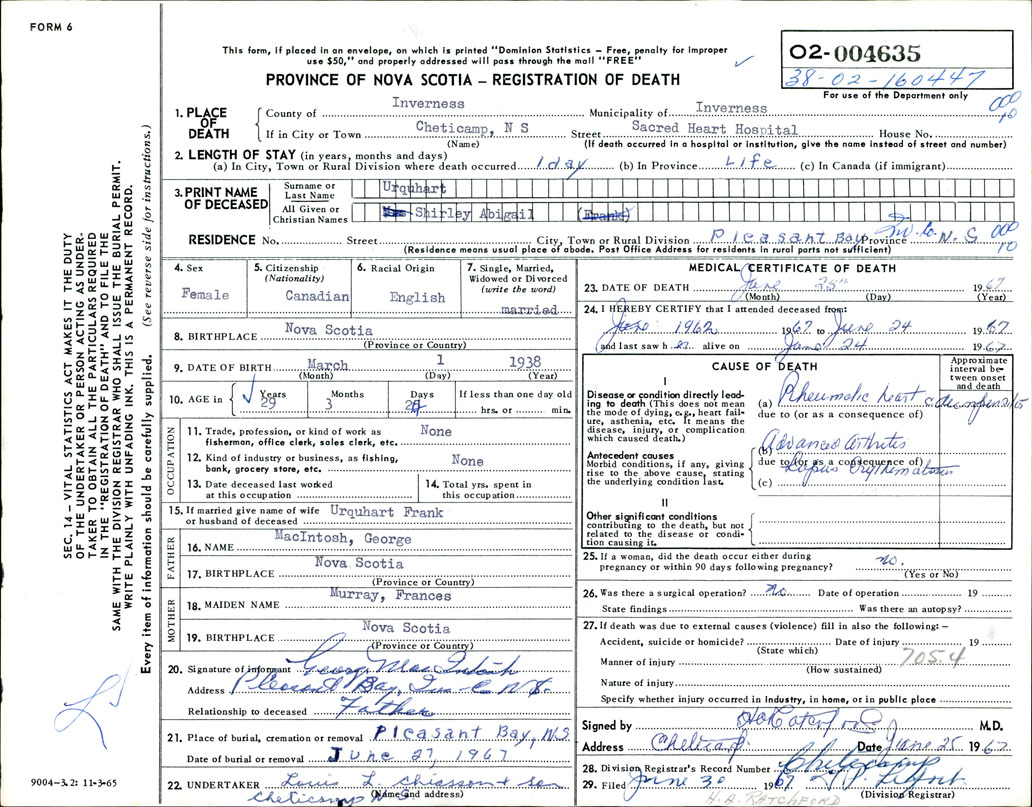 FORM 6
This form, if placed in an envelope, on which is printed "Dominion Statistics – Free, penalty for improper
use $50," and properly addressed will pass through the mail "FREE"
PROVINCE OF NOVA SCOTIA – REGISTRATION OF DEATH
02-004635
38-02-160447
For use of the Department only
SEC. 14 – VITAL STATISTICS ACT MAKES IT THE DUTY
OF THE UNDERTAKER OR PERSON ACTING AS UNDER-
TAKER TO OBTAIN ALL THE PARTICULARS REQUIRED
IN THE "REGISTRATION OF DEATH" AND TO FILE THE
SAME WITH THE DIVISION REGISTRAR WHO SHALL ISSUE THE BURIAL PERMIT.
WRITE PLAINLY WITH UNFADING INK. THIS IS A PERMANENT RECORD.
Every item of information should be carefully supplied. (See reverse side for instructions.)
1. PLACE OF DEATH
County of Inverness Municipality of Inverness
If in City or Town Cheticamp, N S Street Sacred Heart Hospital House No.
(Name) (If death occurred in a hospital or institution, give the name instead of street and number)
000
10
2. LENGTH OF STAY (in years, months and days)
(a) In City, Town or Rural Division where death occurred 1 day (b) In Province Life (c) In Canada (if immigrant)
3. PRINT NAME OF DECEASED
Surname or Last Name Urquhart
All Given or Christian Names Shirley Abigail (Frank)
RESIDENCE No. Street City, Town or Rural Division Pleasant Bay Province N.S
(Residence means usual place of abode. Post Office Address for residents in rural parts not sufficient)
000
10
4. Sex
Female
5. Citizenship
(Nationality)
Canadian
6. Racial Origin
English
7. Single, Married,
Widowed or Divorced
(write the word)
married
8. BIRTHPLACE Nova Scotia
(Province or Country)
9. DATE OF BIRTH March 1 1938
(Month) (Day) (Year)
10. AGE in Years 29 Months 3 Days If less than one day old hrs. or min.
OCCUPATION
11. Trade, profession, or kind of work as
fisherman, office clerk, sales clerk, etc. None
12. Kind of industry or business, as fishing,
bank, grocery store, etc. None
13. Date deceased last worked
at this occupation
14. Total yrs. spent in
this occupation
15. If married give name of wife
or husband of deceased Urquhart Frank
FATHER
16. NAME MacIntosh, George
17. BIRTHPLACE Nova Scotia
(Province or Country)
MOTHER
18. MAIDEN NAME Murray, Frances
19. BIRTHPLACE Nova Scotia
(Province or Country)
20. Signature of informant George MacIntosh
Address Pleasant Bay, Inv. Co N.S.
Relationship to deceased Father
21. Place of burial, cremation or removal Pleasant Bay, N.S
Date of burial or removal June 27, 1967
22. UNDERTAKER Louis L. Chiasson & son
Cheticamp N S (Name and address)
9004–3.2: 11-3-65
MEDICAL CERTIFICATE OF DEATH
23. DATE OF DEATH June 25th 1967
(Month) (Day) (Year)
24. I HEREBY CERTIFY that I attended deceased from:
June 1962 1967 to June 24 1967
and last saw h er alive on June 24 1967
CAUSE OF DEATH
Approximate
interval be-
tween onset
and death
I
Disease or condition directly lead-
ing to death (This does not mean
the mode of dying, e.g., heart fail-
ure, asthenia, etc. It means the
disease, injury, or complication
which caused death.)
(a) Rheumatic heart
due to (or as a consequence of)
Antecedent causes
Morbid conditions, if any, giving
rise to the above cause, stating
the underlying condition last.
(b) Advanced arthritis
due to (or as a consequence of)
(c) Lupus Erythematosus
II
Other significant conditions
contributing to the death, but not
related to the disease or condi-
tion causing it.
25. If a woman, did the death occur either during
pregnancy or within 90 days following pregnancy? no.
(Yes or No)
26. Was there a surgical operation? no Date of operation 19
State findings Was there an autopsy?
27. If death was due to external causes (violence) fill in also the following: –
Accident, suicide or homicide? Date of injury 19
(State which)
Manner of injury 705.4
(How sustained)
Nature of injury
Specify whether injury occurred in industry, in home, or in public place
Signed by M.D.
Address Cheticamp Date June 25 1967
28. Division Registrar's Record Number Cheticamp
29. Filed June 30 1967
(Division Registrar)
H. A. RATCHFORD